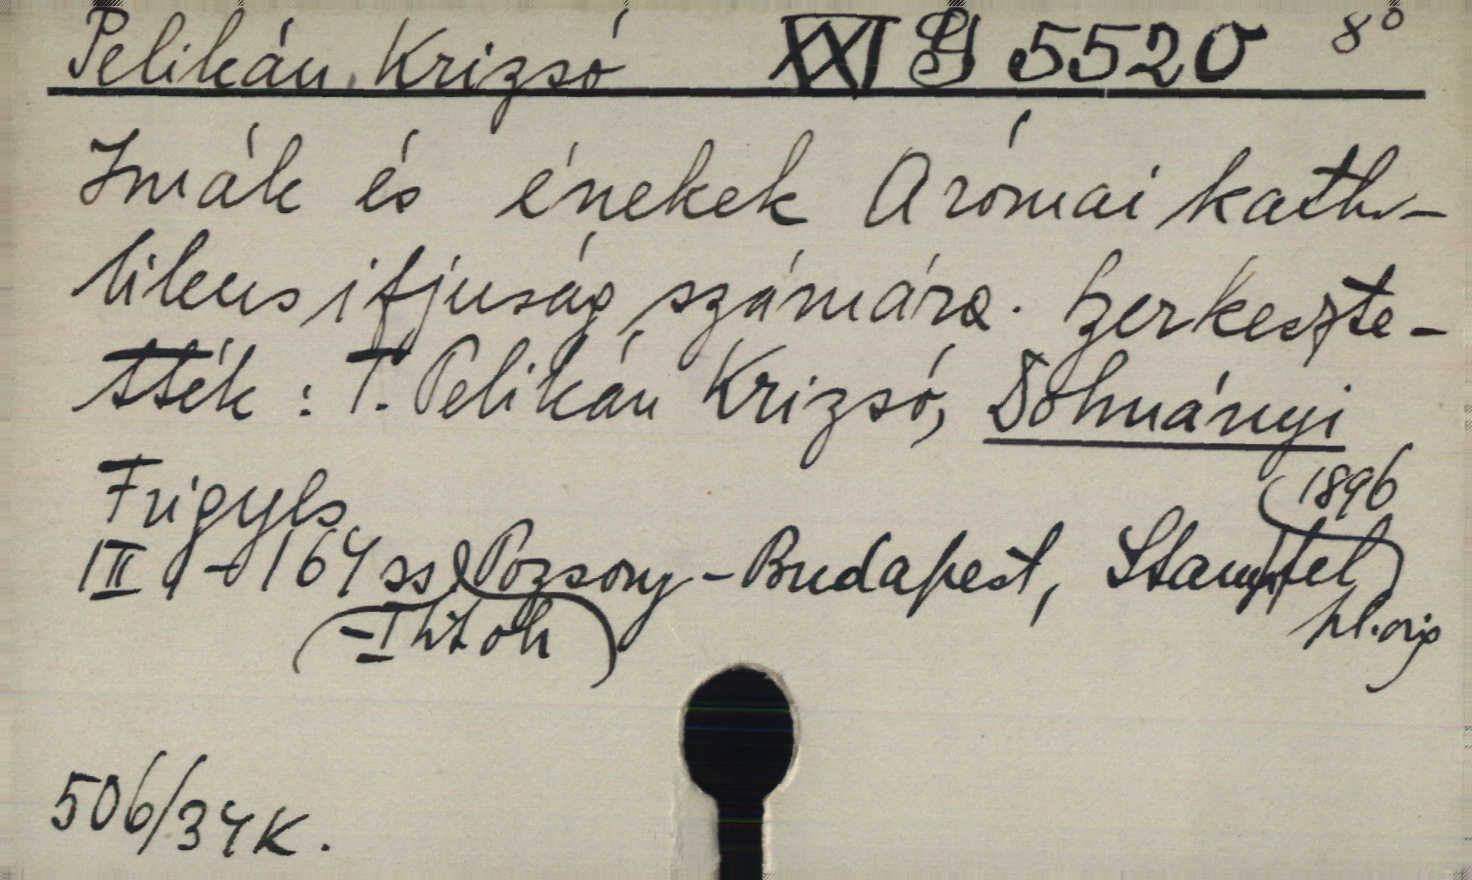 Pelikán Krizsó XXI G 5520 8°
Imák és énekek A római katho-
likus ifjuság számára. Szerkeszte-
tték: T. Pelikán Krizsó, Dohnányi
Frigyes
1896
III - 164 ss Pozsony - Budapest, Stampfel
pl. orig
506/34 K.